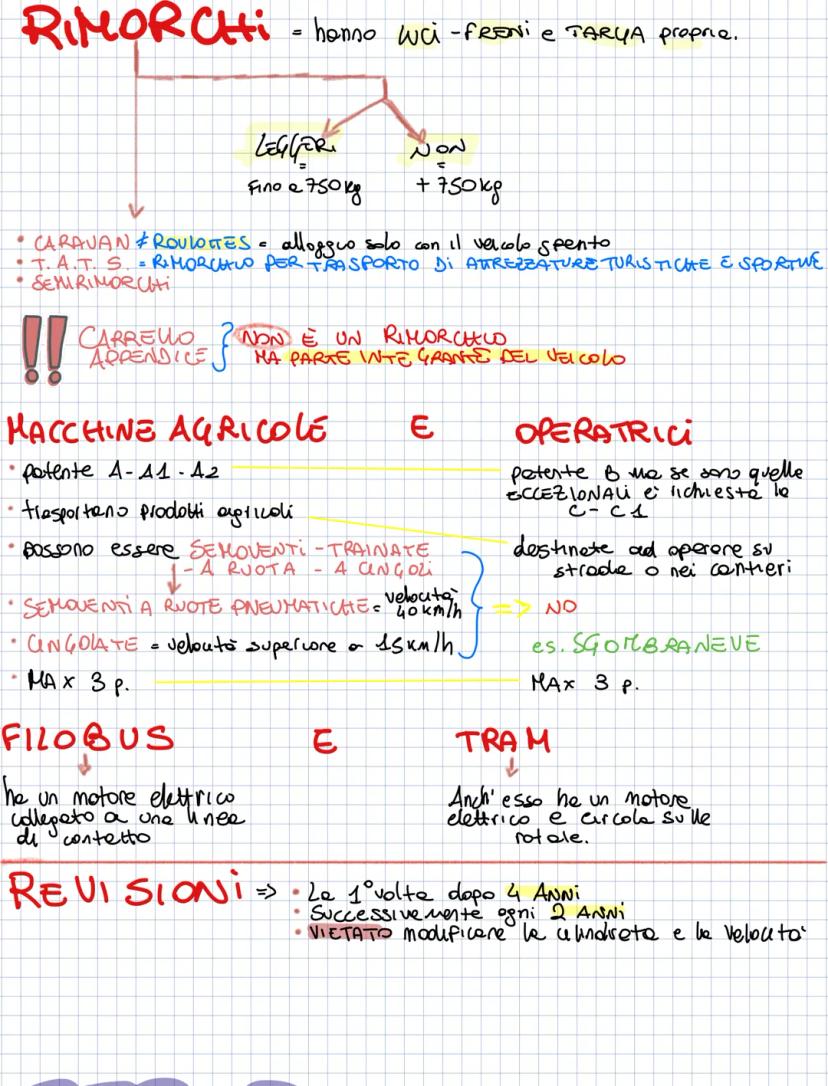 RIMORCHI = hanno luci - FRENI e TARGA propria.
LEGGERI NON
= =
Fino a 750kg + 750kg
• CARAVAN ≠ ROULOTTES = alloggio solo con il veicolo spento
• T. A. T. S. = RIMORCHIO PER TRASPORTO DI ATTREZZATURE TURISTICHE E SPORTIVE
• SEMIRIMORCHI
!! CARRELLO APPENDICE } NON È UN RIMORCHIO
MA PARTE INTEGRANTE DEL VEICOLO
MACCHINE AGRICOLE E OPERATRICI
• patente A - A1 - A2
patente B ma se sono quelle
ECCEZIONALI è richiesta la
C - C1
• trasportano prodotti agricoli
• possono essere SEMOVENTI - TRAINATE
- A RUOTA - A CINGOLI
destinate ad operare su
strada o nei cantieri
• SEMOVENTI A RUOTE PNEUMATICHE = velocità 40 km/h
=> NO
• CINGOLATE = velocità superiore a 15km/h
es. SGOMBRANEVE
• MAX 3 p.
MAX 3 p.
FILOBUS E TRAM
ha un motore elettrico
collegato a una linea
di contatto
Anch' esso ha un motore
elettrico e circola sulle
rotaie.
REVISIONI => • La 1° volta dopo 4 ANNI
• Successivamente ogni 2 ANNI
• VIETATO modificare la cilindrata e la velocità